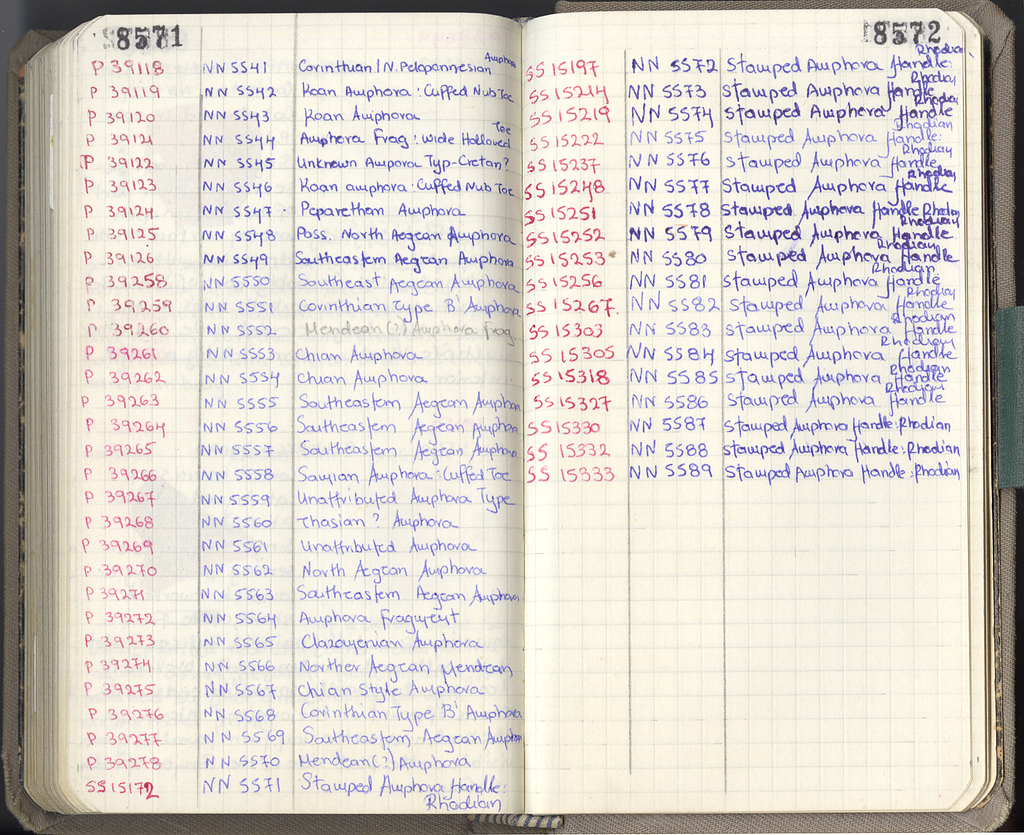 8571
P 39118 NN 5541 Corinthian / N. Peloponnesian Amphora
P 39119 NN 5542 Koan Amphora : Cuffed Nub Toe
P 39120 NN 5543 Koan Amphora
P 39121 NN 5544 Amphora Frag : Wide Hollowed Toe
P 39122 NN 5545 Unknown Ampora Typ-Cretan?
P 39123 NN 5546 Koan amphora : Cuffed Nub Toe
P 39124 NN 5547 Peparethan Amphora
P 39125 NN 5548 Poss. North Aegean Amphora
P 39126 NN 5549 Southeastern Aegean Amphora
P 39258 NN 5550 Southeast Aegean Amphora
P 39259 NN 5551 Corinthian Type B' Amphora
P 39260 NN 5552 Mendean (?) Amphora Frag.
P 39261 NN 5553 Chian Amphora
P 39262 NN 5554 Chian Amphora
P 39263 NN 5555 Southeastern Aegean Amphora
P 39264 NN 5556 Southeastern Aegean Amphora
P 39265 NN 5557 Southeastern Aegean Amphora
P 39266 NN 5558 Samian Amphora : Cuffed Toe
P 39267 NN 5559 Unattributed Amphora Type
P 39268 NN 5560 Thasian ? Amphora
P 39269 NN 5561 Unattributed Amphora
P 39270 NN 5562 North Aegean Amphora
P 39271 NN 5563 Southeastern Aegean Amphora
P 39272 NN 5564 Amphora Fragment
P 39273 NN 5565 Clazomenian Amphora
P 39274 NN 5566 Norther Aegean Mendean
P 39275 NN 5567 Chian Style Amphora
P 39276 NN 5568 Corinthian Type B' Amphora
P 39277 NN 5569 Southeastern Aegean Amphora
P 39278 NN 5570 Mendean (?) Amphora
SS 15172 NN 5571 Stamped Amphora Handle:
Rhodian
8572
SS 15197 NN 5572 Stamped Amphora Handle: Rhodian
SS 15214 NN 5573 Stamped Amphora Handle Rhodian
SS 15219 NN 5574 Stamped Amphora Handle Rhodian
SS 15222 NN 5575 Stamped Amphora Handle: Rhodian
SS 15237 NN 5576 Stamped Amphora Handle Rhodian
SS 15248 NN 5577 Stamped Amphora Handle Rhodian
SS 15251 NN 5578 Stamped Amphora Handle Rhodian
SS 15252 NN 5579 Stamped Amphora Handle Rhodian
SS 15253 NN 5580 Stamped Amphora Handle Rhodian
SS 15256 NN 5581 Stamped Amphora Handle Rhodian
SS 15267. NN 5582 Stamped Amphora Handle Rhodian
SS 15303 NN 5583 Stamped Amphora Handle Rhodian
SS 15305 NN 5584 Stamped Amphora Handle Rhodian
SS 15318 NN 5585 Stamped Amphora Handle Rhodian
SS 15327 NN 5586 Stamped Amphora Handle Rhodian
SS 15330 NN 5587 Stamped Amphora Handle : Rhodian
SS 15332 NN 5588 Stamped Amphora Handle : Rhodian
SS 15333 NN 5589 Stamped Amphora Handle : Rhodian